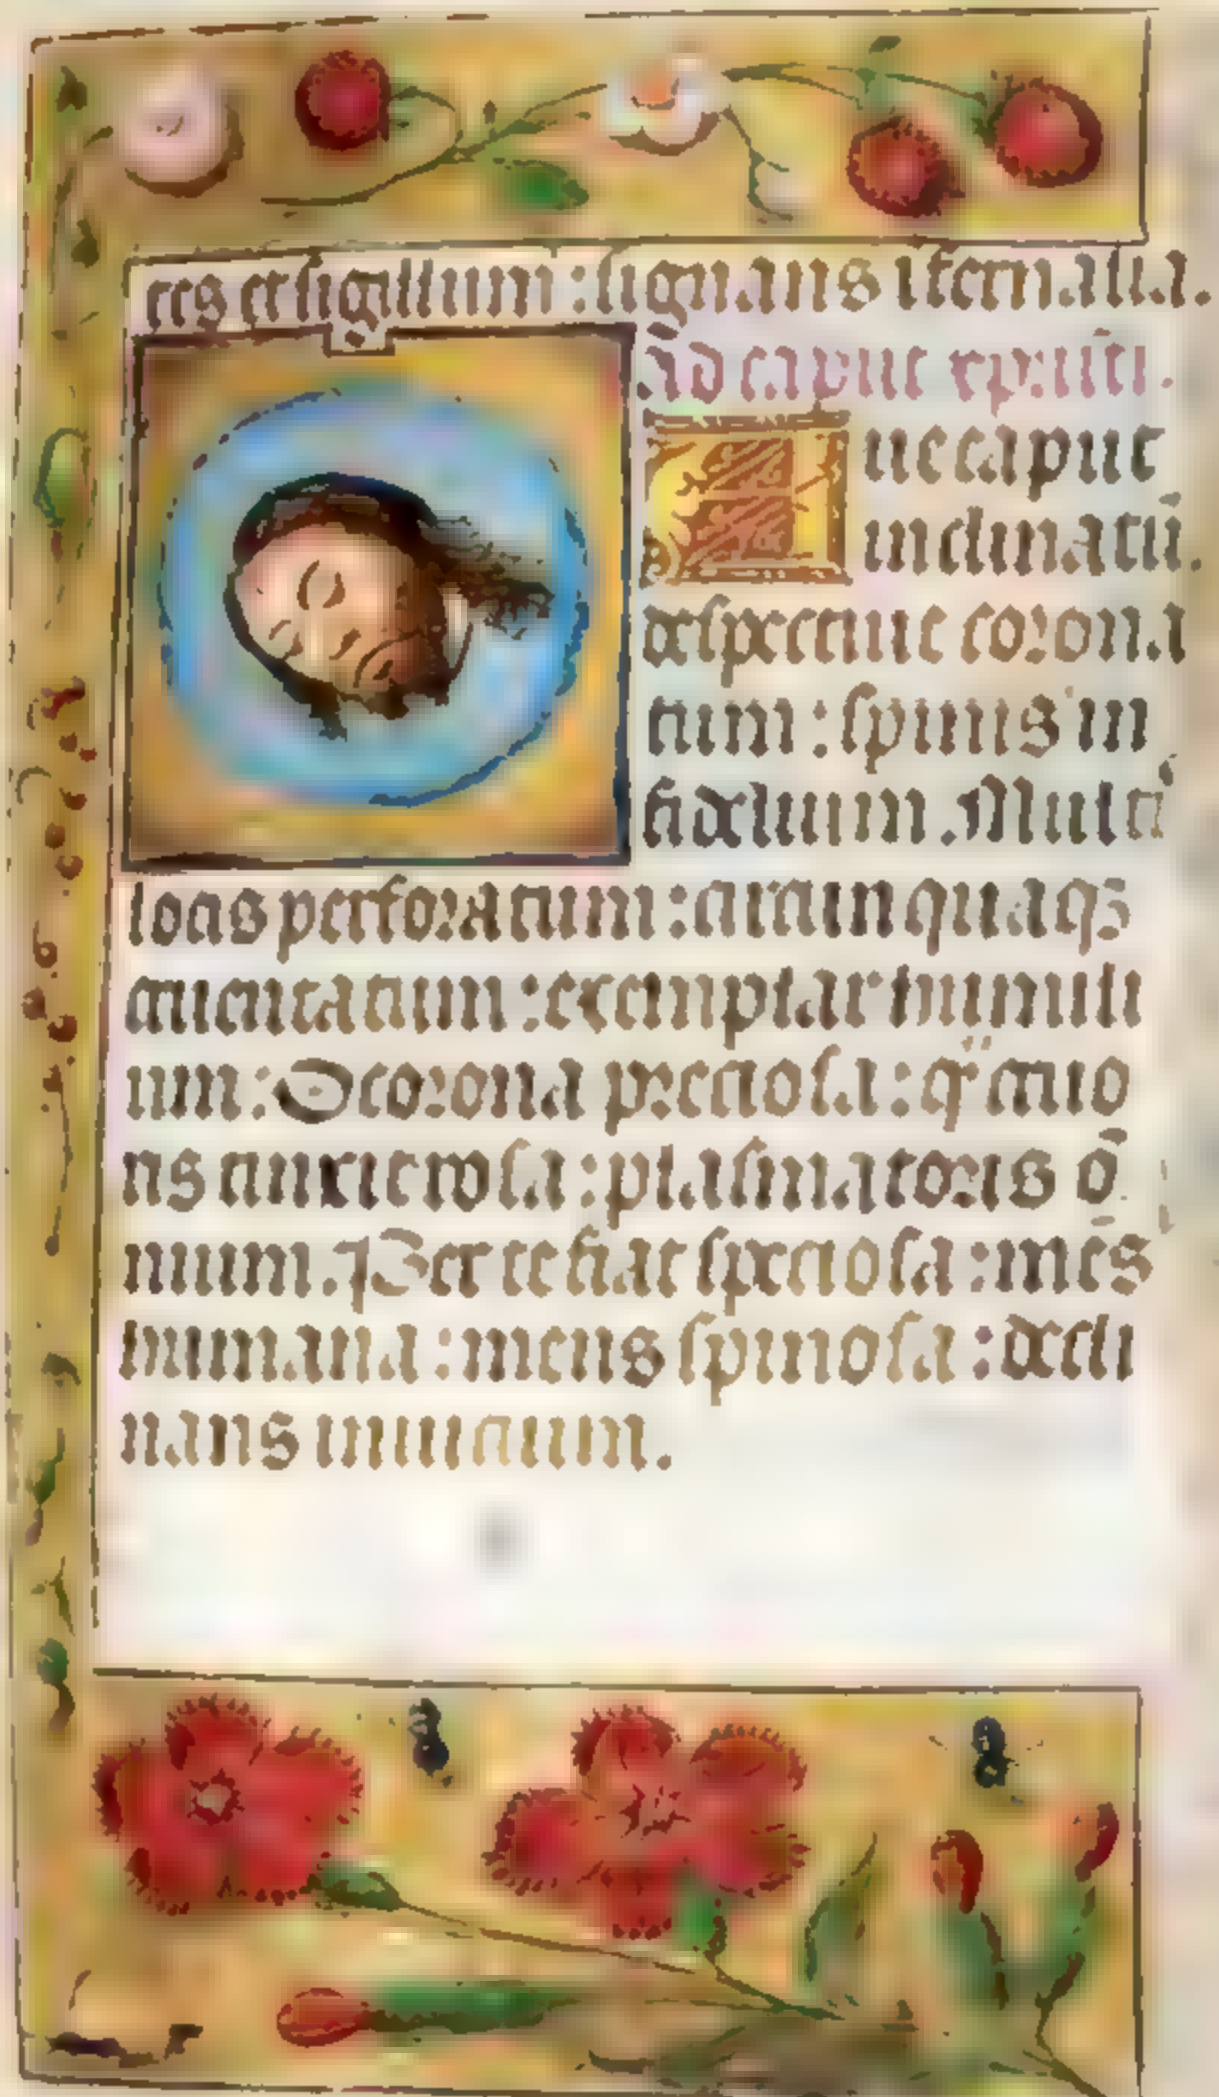 ces et sigillum : signans īternalia.
Ad caput xp̄isti.
Aue caput
inclinatū.
despectiue corona
tum : spinis in
fidelium. Multi
locis perforatum : circūquaqȝ
cruentatum : exemplar humili
um : O corona preciosa : q̈ cruo
ris tinxit rosa : plasmatoris ō
nium. Per te fiat speciosa : mēs
humana : mens spinosa : decli
nans inuicium.